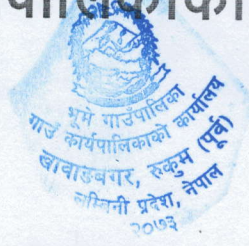 पालिकाको
भूमे गाउँपालिका
गाउँ कार्यपालिकाको कार्यालय
खावाङबगर, रुकुम (पूर्व)
लुम्बिनी प्रदेश, नेपाल
२०७३